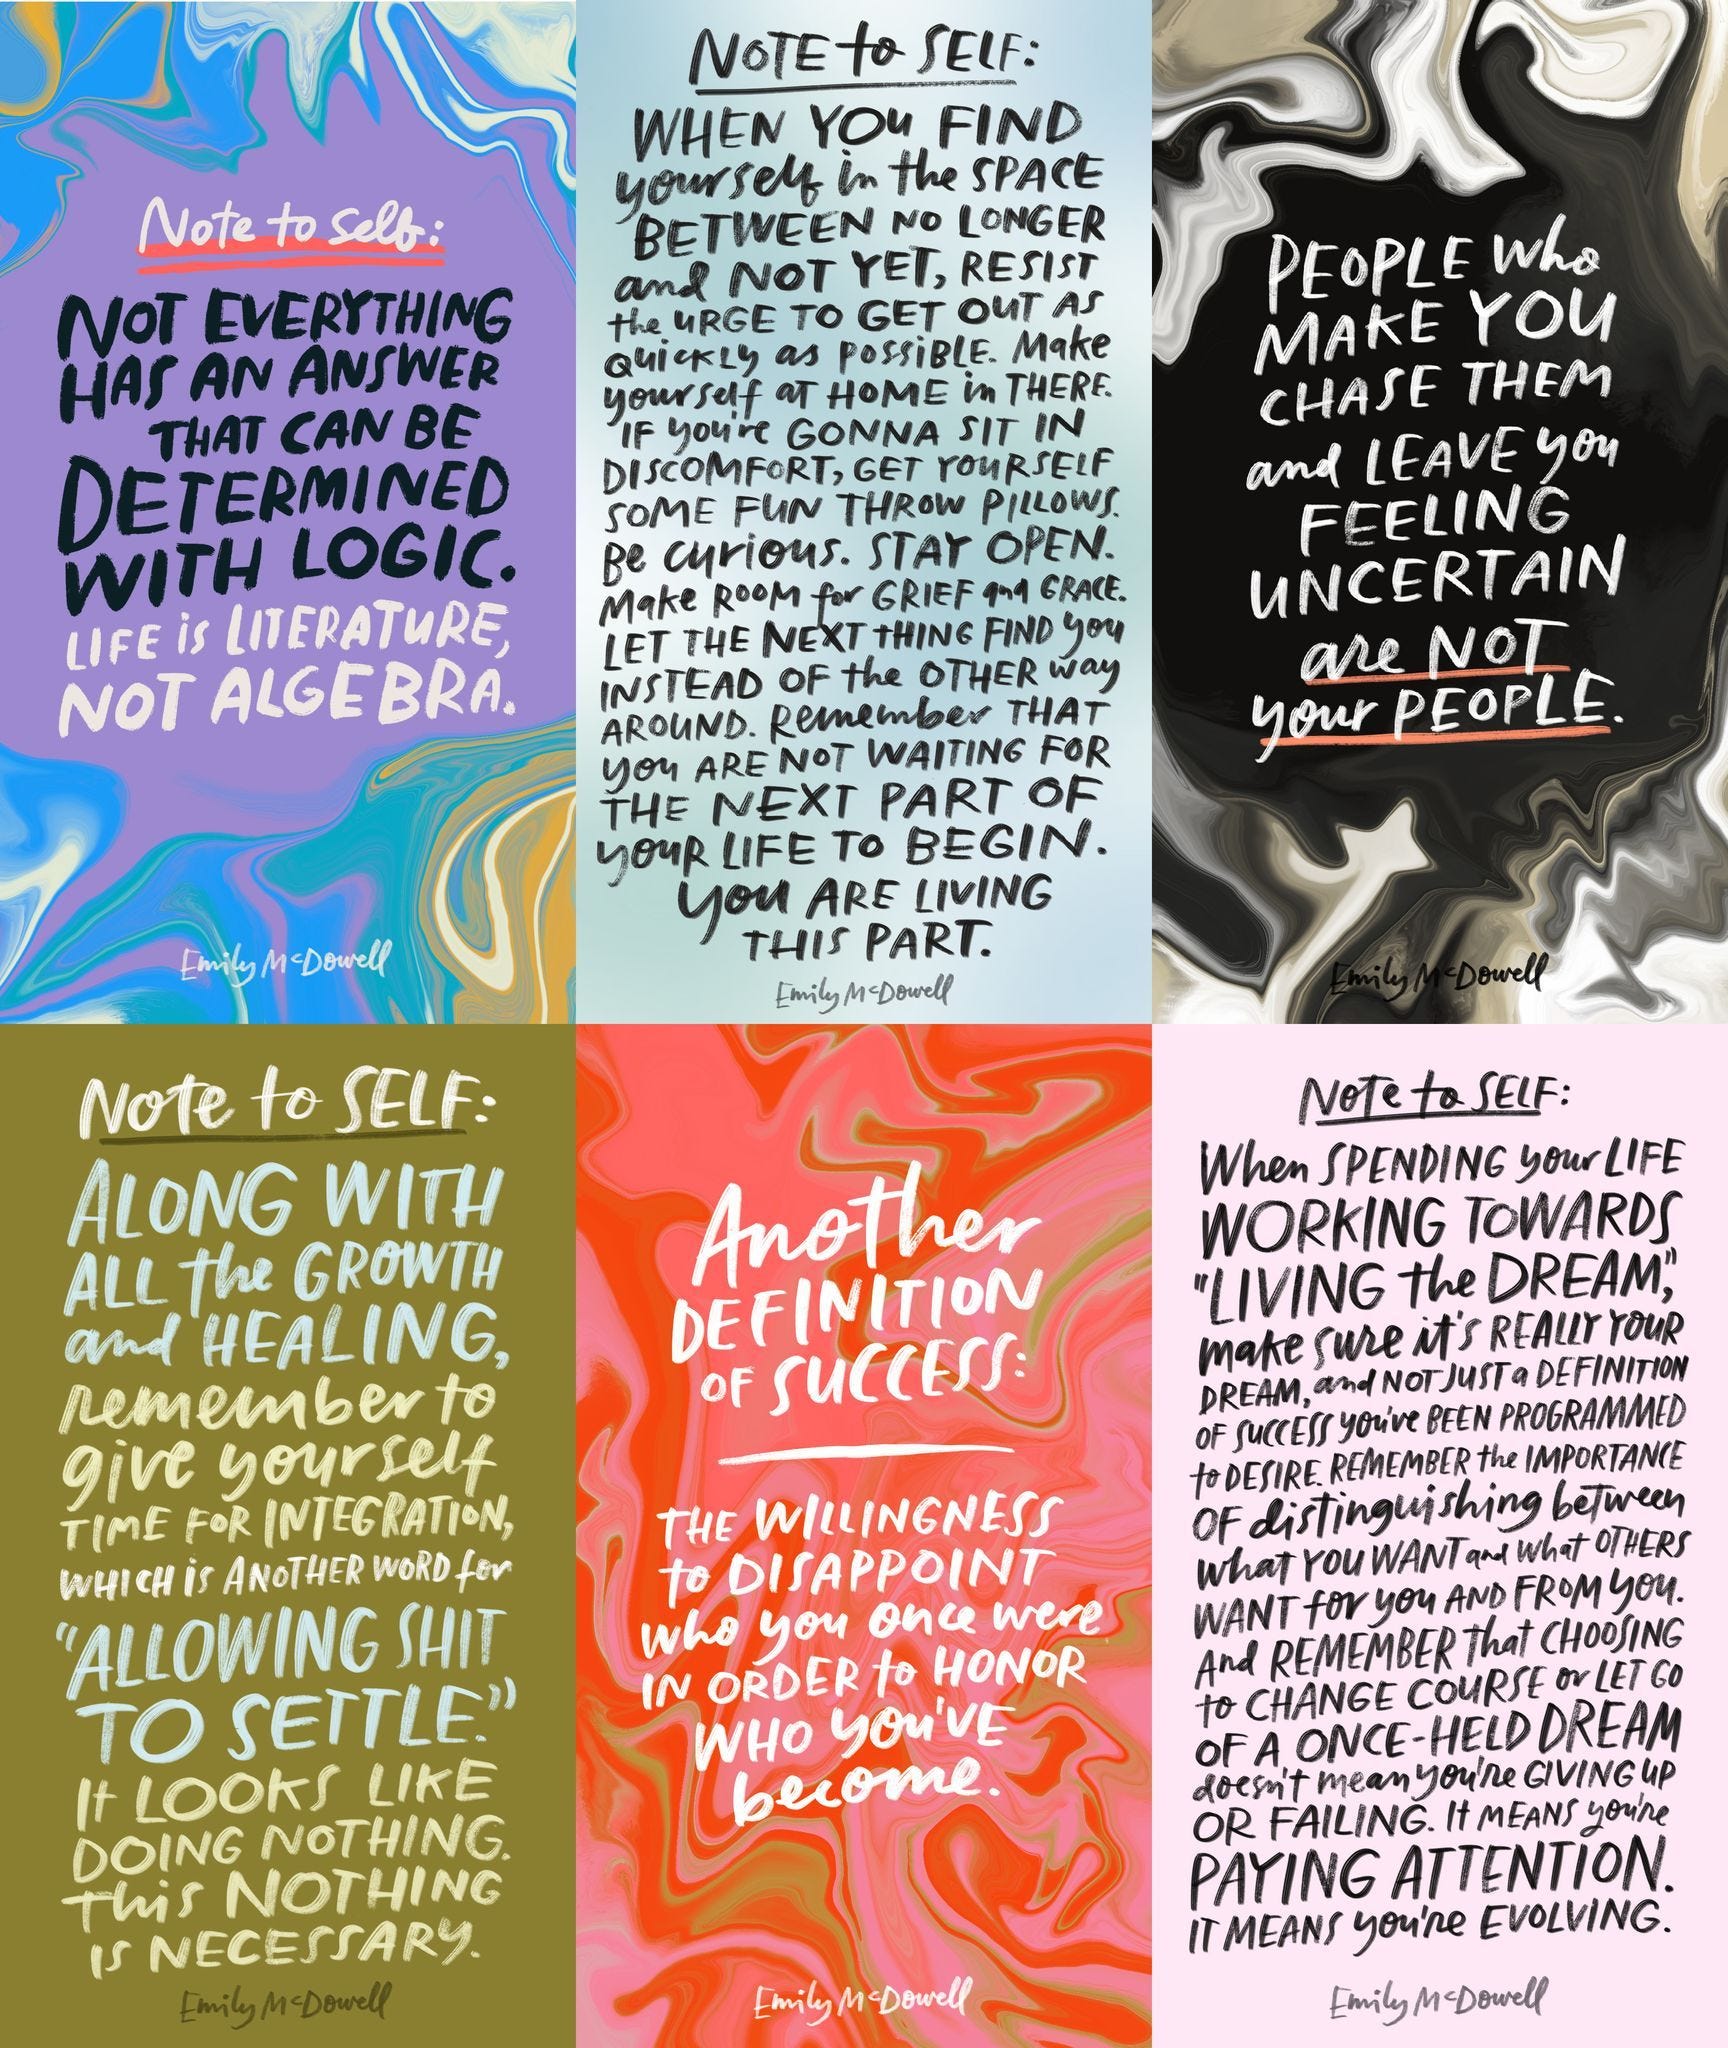 Note to self:
NOT EVERYTHING
HAS AN ANSWER
THAT CAN BE
DETERMINED
WITH LOGIC.
LIFE is LITERATURE,
NOT ALGEBRA.
Emily McDowell
NOTE to SELF:
WHEN YOu FIND
yourself in the SPACE
BETWEEN NO LONGER
and NOT YET, RESIST
the URGE TO GET OUT AS
QUICKLY as POSSIBLE. Make
yourself AT HOME in THERE.
IF you're GONNA SIT IN
DISCOMFORT, GET YOURSELF
SOME FUN THROW PILLOWS.
Be curious. STAY OPEN.
Make ROOM for GRIEF and GRACE.
LET THE NEXT tHING FIND you
INSTEAD OF the OTHER way
AROUND. Remember THAT
you ARE NOT WAITING FOR
THE NEXT PART OF
youR LIFE TO BEGIN.
you ARE LIVING
THIS PART.
Emily McDowell
PEOPLE who
MAKE YOU
CHASE THEM
and LEAVE you
FEELING
UNCERTAIN
are NOT
your PEOPLE.
Emily McDowell
Note to SELF:
ALONG WITH
ALL the GROWTH
and HEALING,
remember to
give yourself
TIME FOR INTEGRATION,
WHICH is ANOTHER WORD for
"ALLOWING SHIT
TO SETTLE."
It LOOKS LIKE
DOING NOTHING.
this NOTHING
IS NECESSARY.
Emily McDowell
Another
DEFINITION
OF SUCCESS:
THE WILLINGNESS
to DISAPPOINT
who you once were
IN ORDER to HONOR
WHO you'VE
become.
Emily McDowell
NOte to SELF:
When SPENDING your LIFE
WORKING TOWARDS
"LIVING the DREAM,"
make sure it's REALLY YOUR
DREAM, and NOT JUST a DEFINITION
OF SUCCESS you've BEEN PROGRAMMED
to DESIRE. REMEMBER the IMPORTANCE
OF distinguishing between
what YOU WANT and what OTHERS
WANT for you AND FROM you.
And REMEMBER that CHOOSING
to CHANGE COURSE or LET GO
OF A ONCE-HELD DREAM
doesn't mean you're GIVING UP
OR FAILING. It MEANS you're
PAYING ATTENTION.
IT MEANS you're EVOLVING.
Emily McDowell